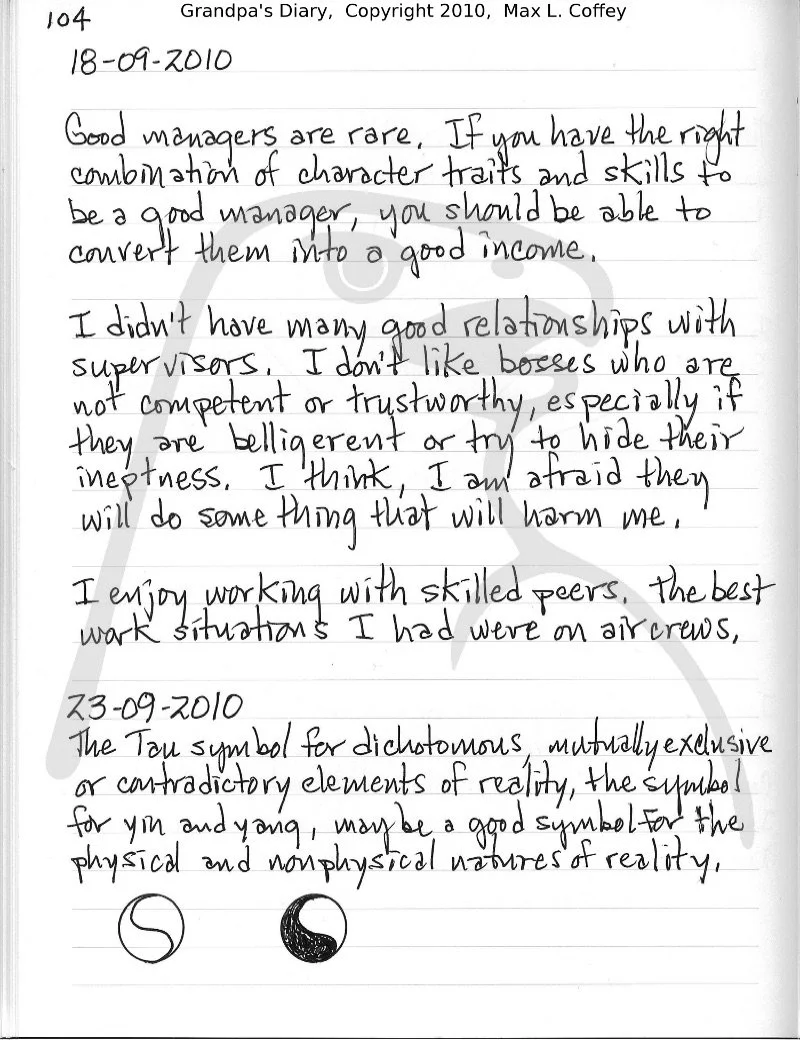 104
Grandpa's Diary, Copyright 2010, Max L. Coffey
18-09-2010
Good managers are rare. If you have the right
combination of character traits and skills to
be a good manager, you should be able to
convert them into a good income.
I didn't have many good relationships with
supervisors. I don't like bosses who are
not competent or trustworthy, especially if
they are belligerent or try to hide their
ineptness. I think, I am afraid they
will do something that will harm me.
I enjoy working with skilled peers. The best
work situations I had were on aircrews.
23-09-2010
The Tau symbol for dichotomous, mutually exclusive
or contradictory elements of reality, the symbol
for yin and yang, may be a good symbol for the
physical and nonphysical natures of reality.